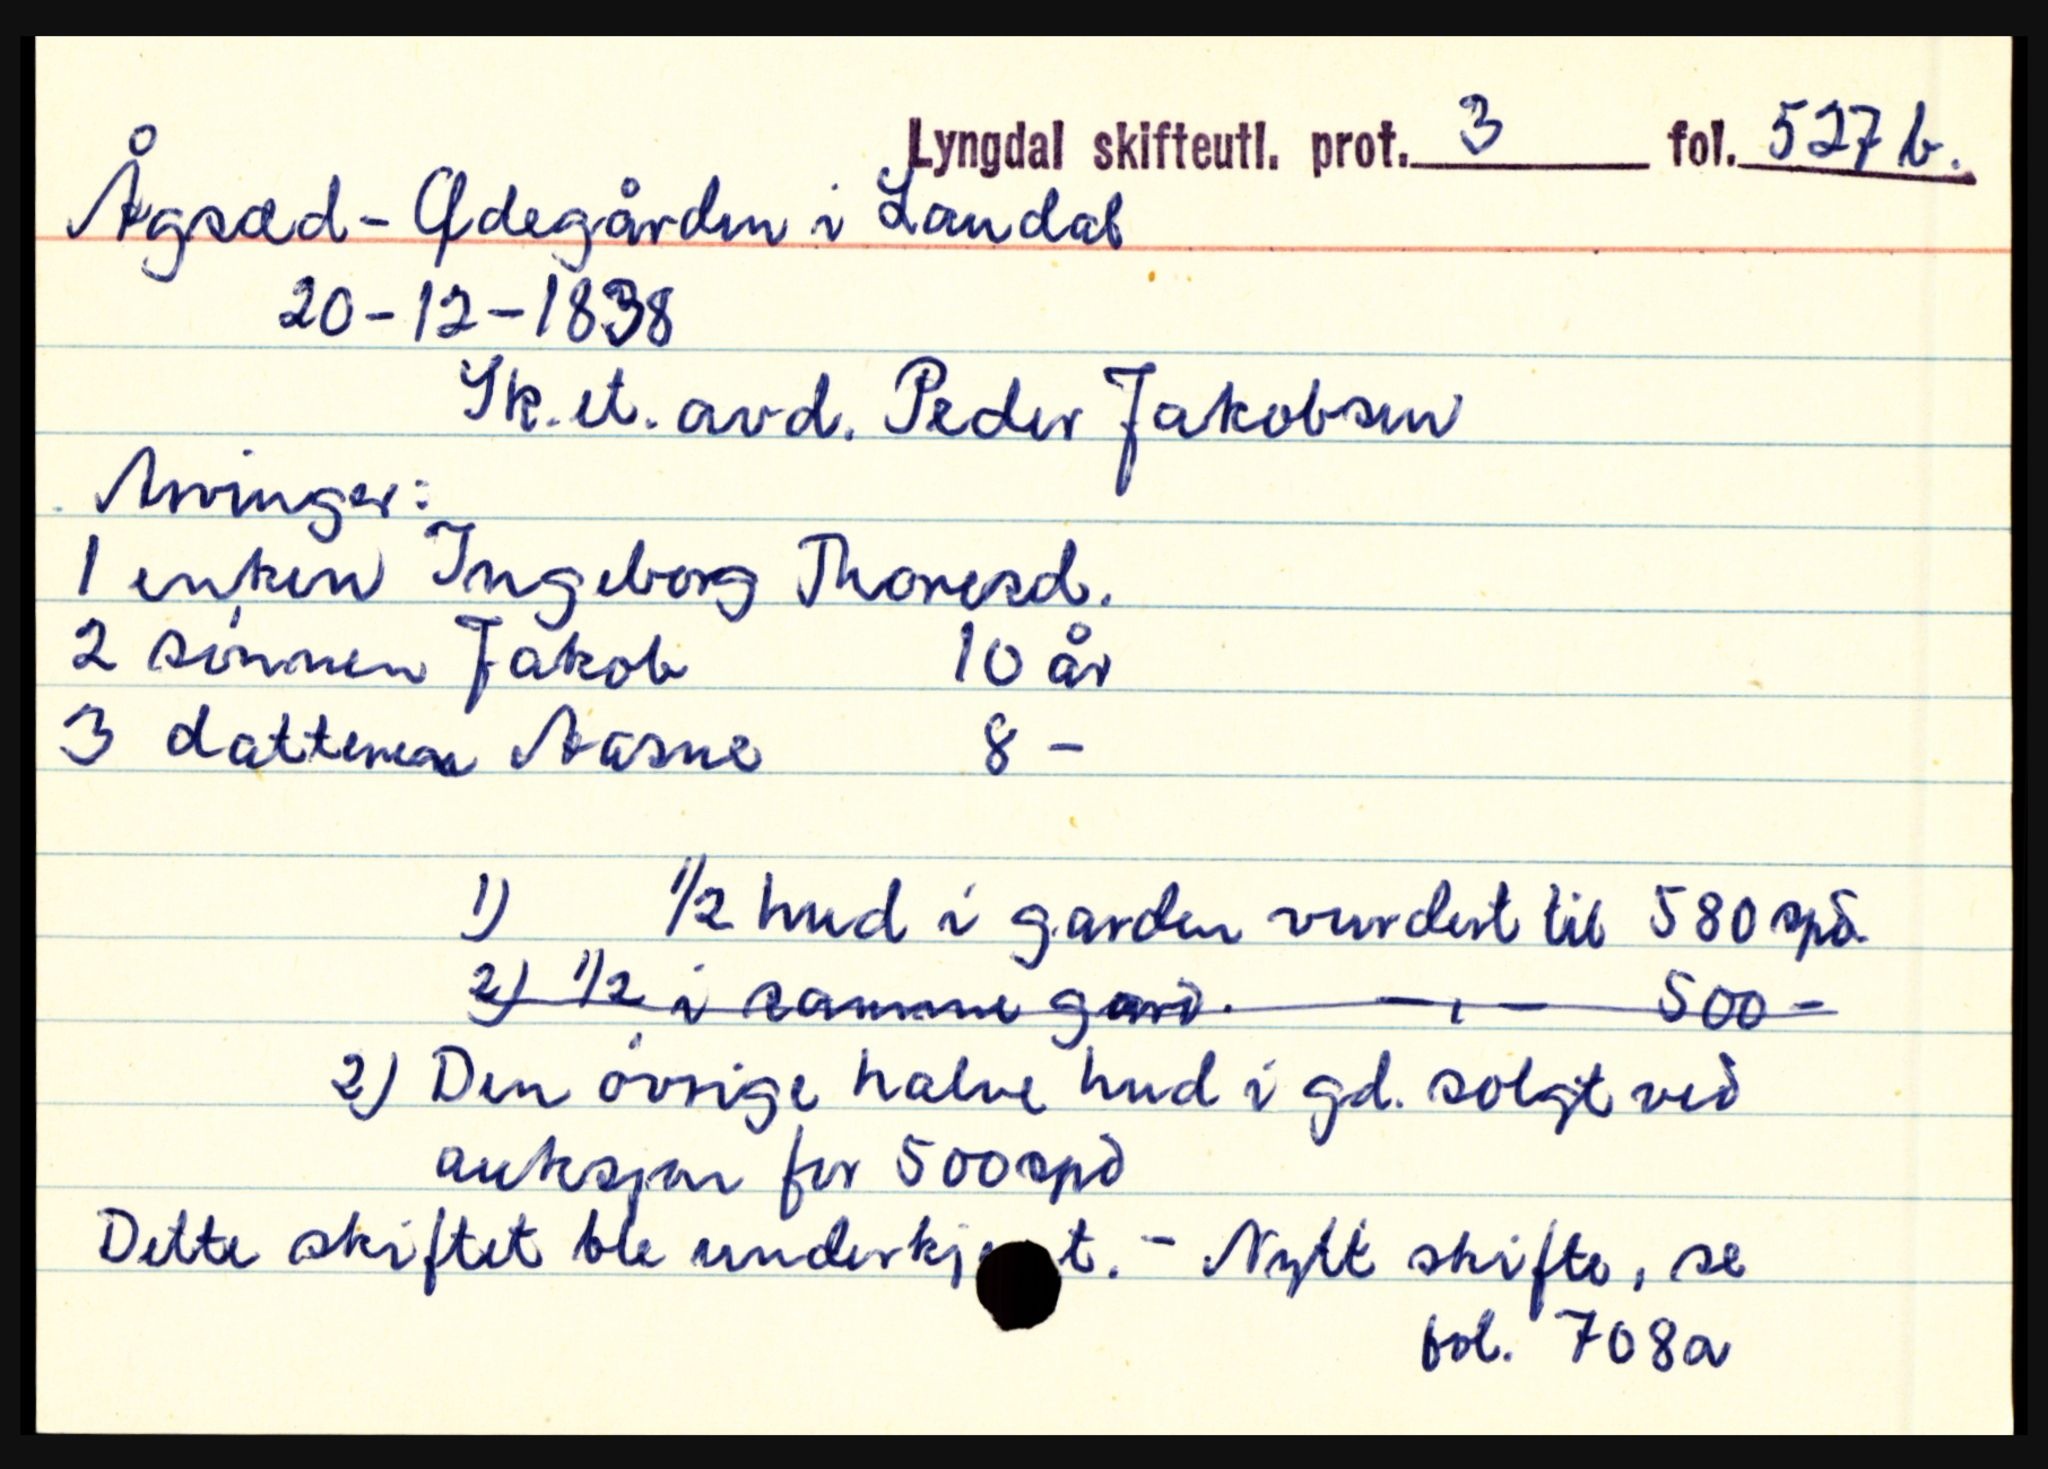 Lyngdal skifteutl. prot. 3 fol. 527 b.
Ågsæd - Ødegården i Landal
20-12-1838
Sk. et. avd. Peder Jakobsen
Arvinger:
1 enken Ingeborg Thoresd.
2 sønnen Jakob 10 år
3 datteren Aasne 8 -
1) 1/2 hud i garden vurdert til 580 spd.
2) 1/2 i samme gard. - , - 500 -
2) Den øvrige halve hud i gd. solgt ved
auksjon for 500 spd
Dette skiftet ble underkj t. - Nytt skifte, se
fol. 708a